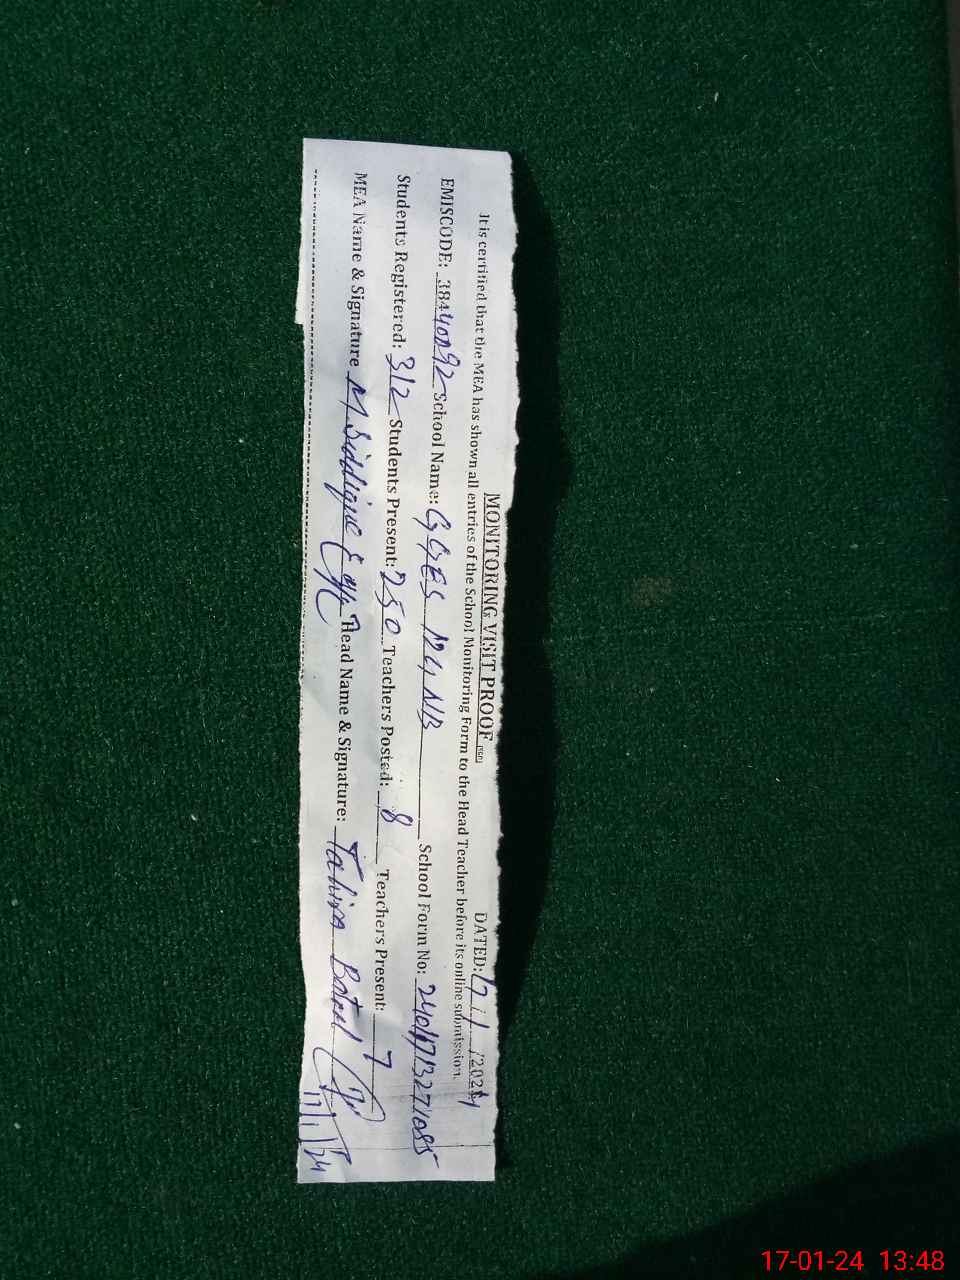 MONITORING VISIT PROOF
DATED: 17/1/2024
It is certified that the MEA has shown all entries of the School Monitoring Form to the Head Teacher before its online submission.
EMISCODE: 38440092 School Name: GGES 124 NB School Form No:
Students Registered: 312 Students Present: 250 Teachers Posted: 8 Teachers Present: 7
MEA Name & Signature M Siddique Head Name & Signature: Tahira Batool
17/1/24
17-01-24 13:48